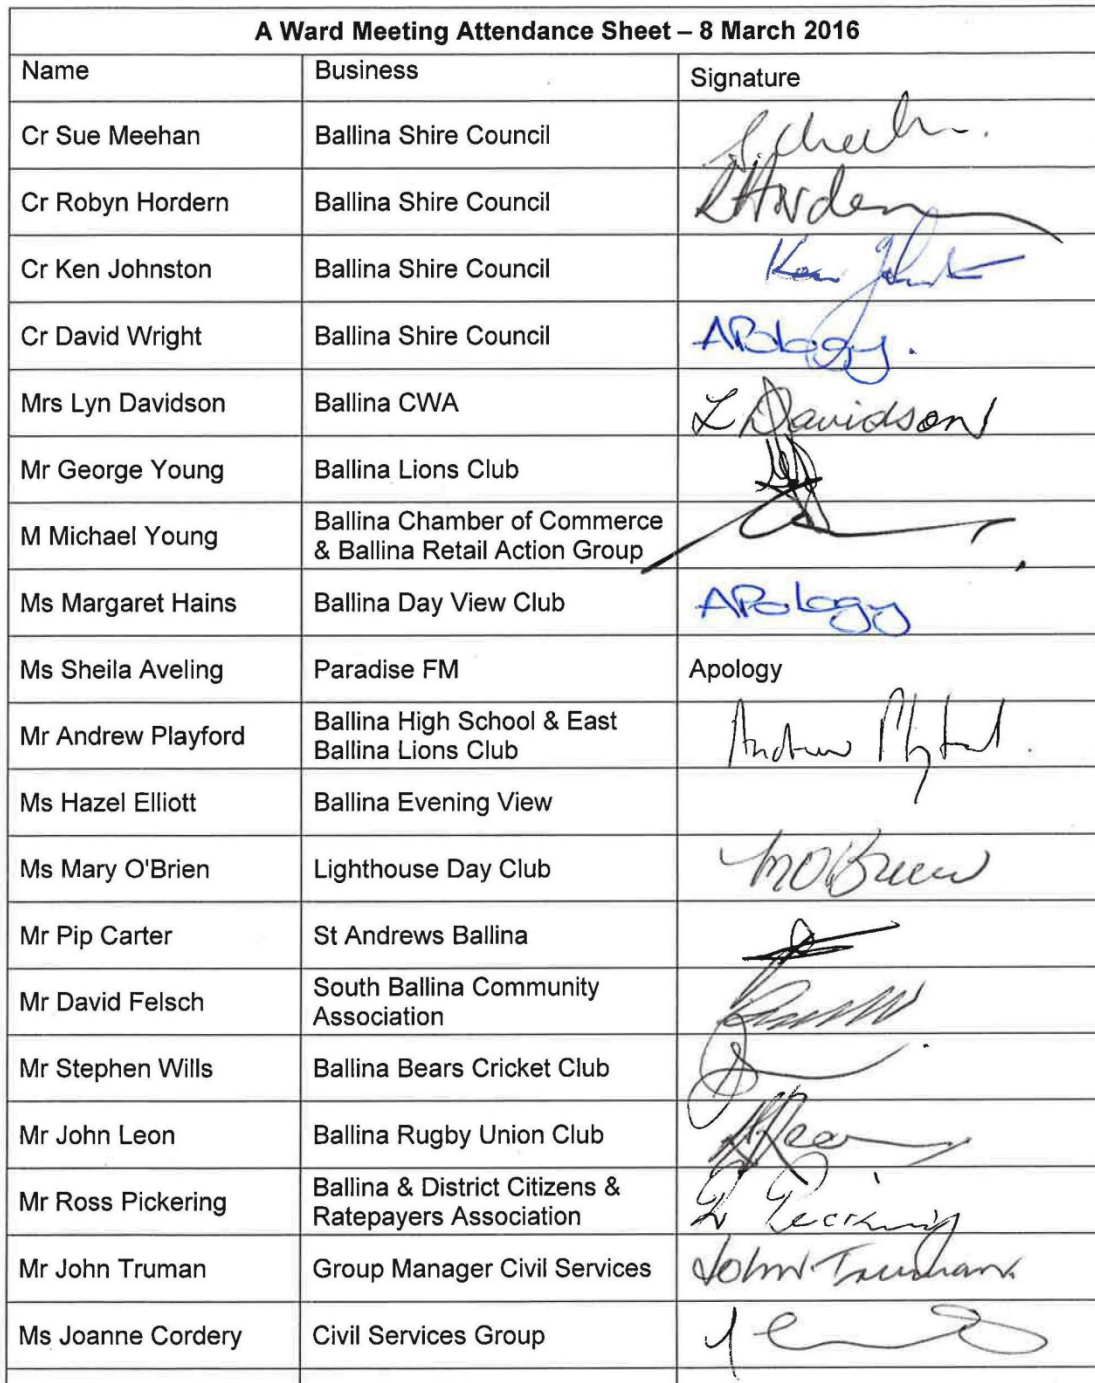 A Ward Meeting Attendance Sheet – 8 March 2016
Name Business Signature
Cr Sue Meehan Ballina Shire Council
Cr Robyn Hordern Ballina Shire Council
Cr Ken Johnston Ballina Shire Council Ken
Cr David Wright Ballina Shire Council APology.
Mrs Lyn Davidson Ballina CWA L Davidson
Mr George Young Ballina Lions Club
M Michael Young Ballina Chamber of Commerce
& Ballina Retail Action Group
Ms Margaret Hains Ballina Day View Club APology
Ms Sheila Aveling Paradise FM Apology
Mr Andrew Playford Ballina High School & East
Ballina Lions Club Andrew
Ms Hazel Elliott Ballina Evening View
Ms Mary O'Brien Lighthouse Day Club MO'Brien
Mr Pip Carter St Andrews Ballina
Mr David Felsch South Ballina Community
Association
Mr Stephen Wills Ballina Bears Cricket Club
Mr John Leon Ballina Rugby Union Club
Mr Ross Pickering Ballina & District Citizens &
Ratepayers Association
Mr John Truman Group Manager Civil Services John Truman
Ms Joanne Cordery Civil Services Group